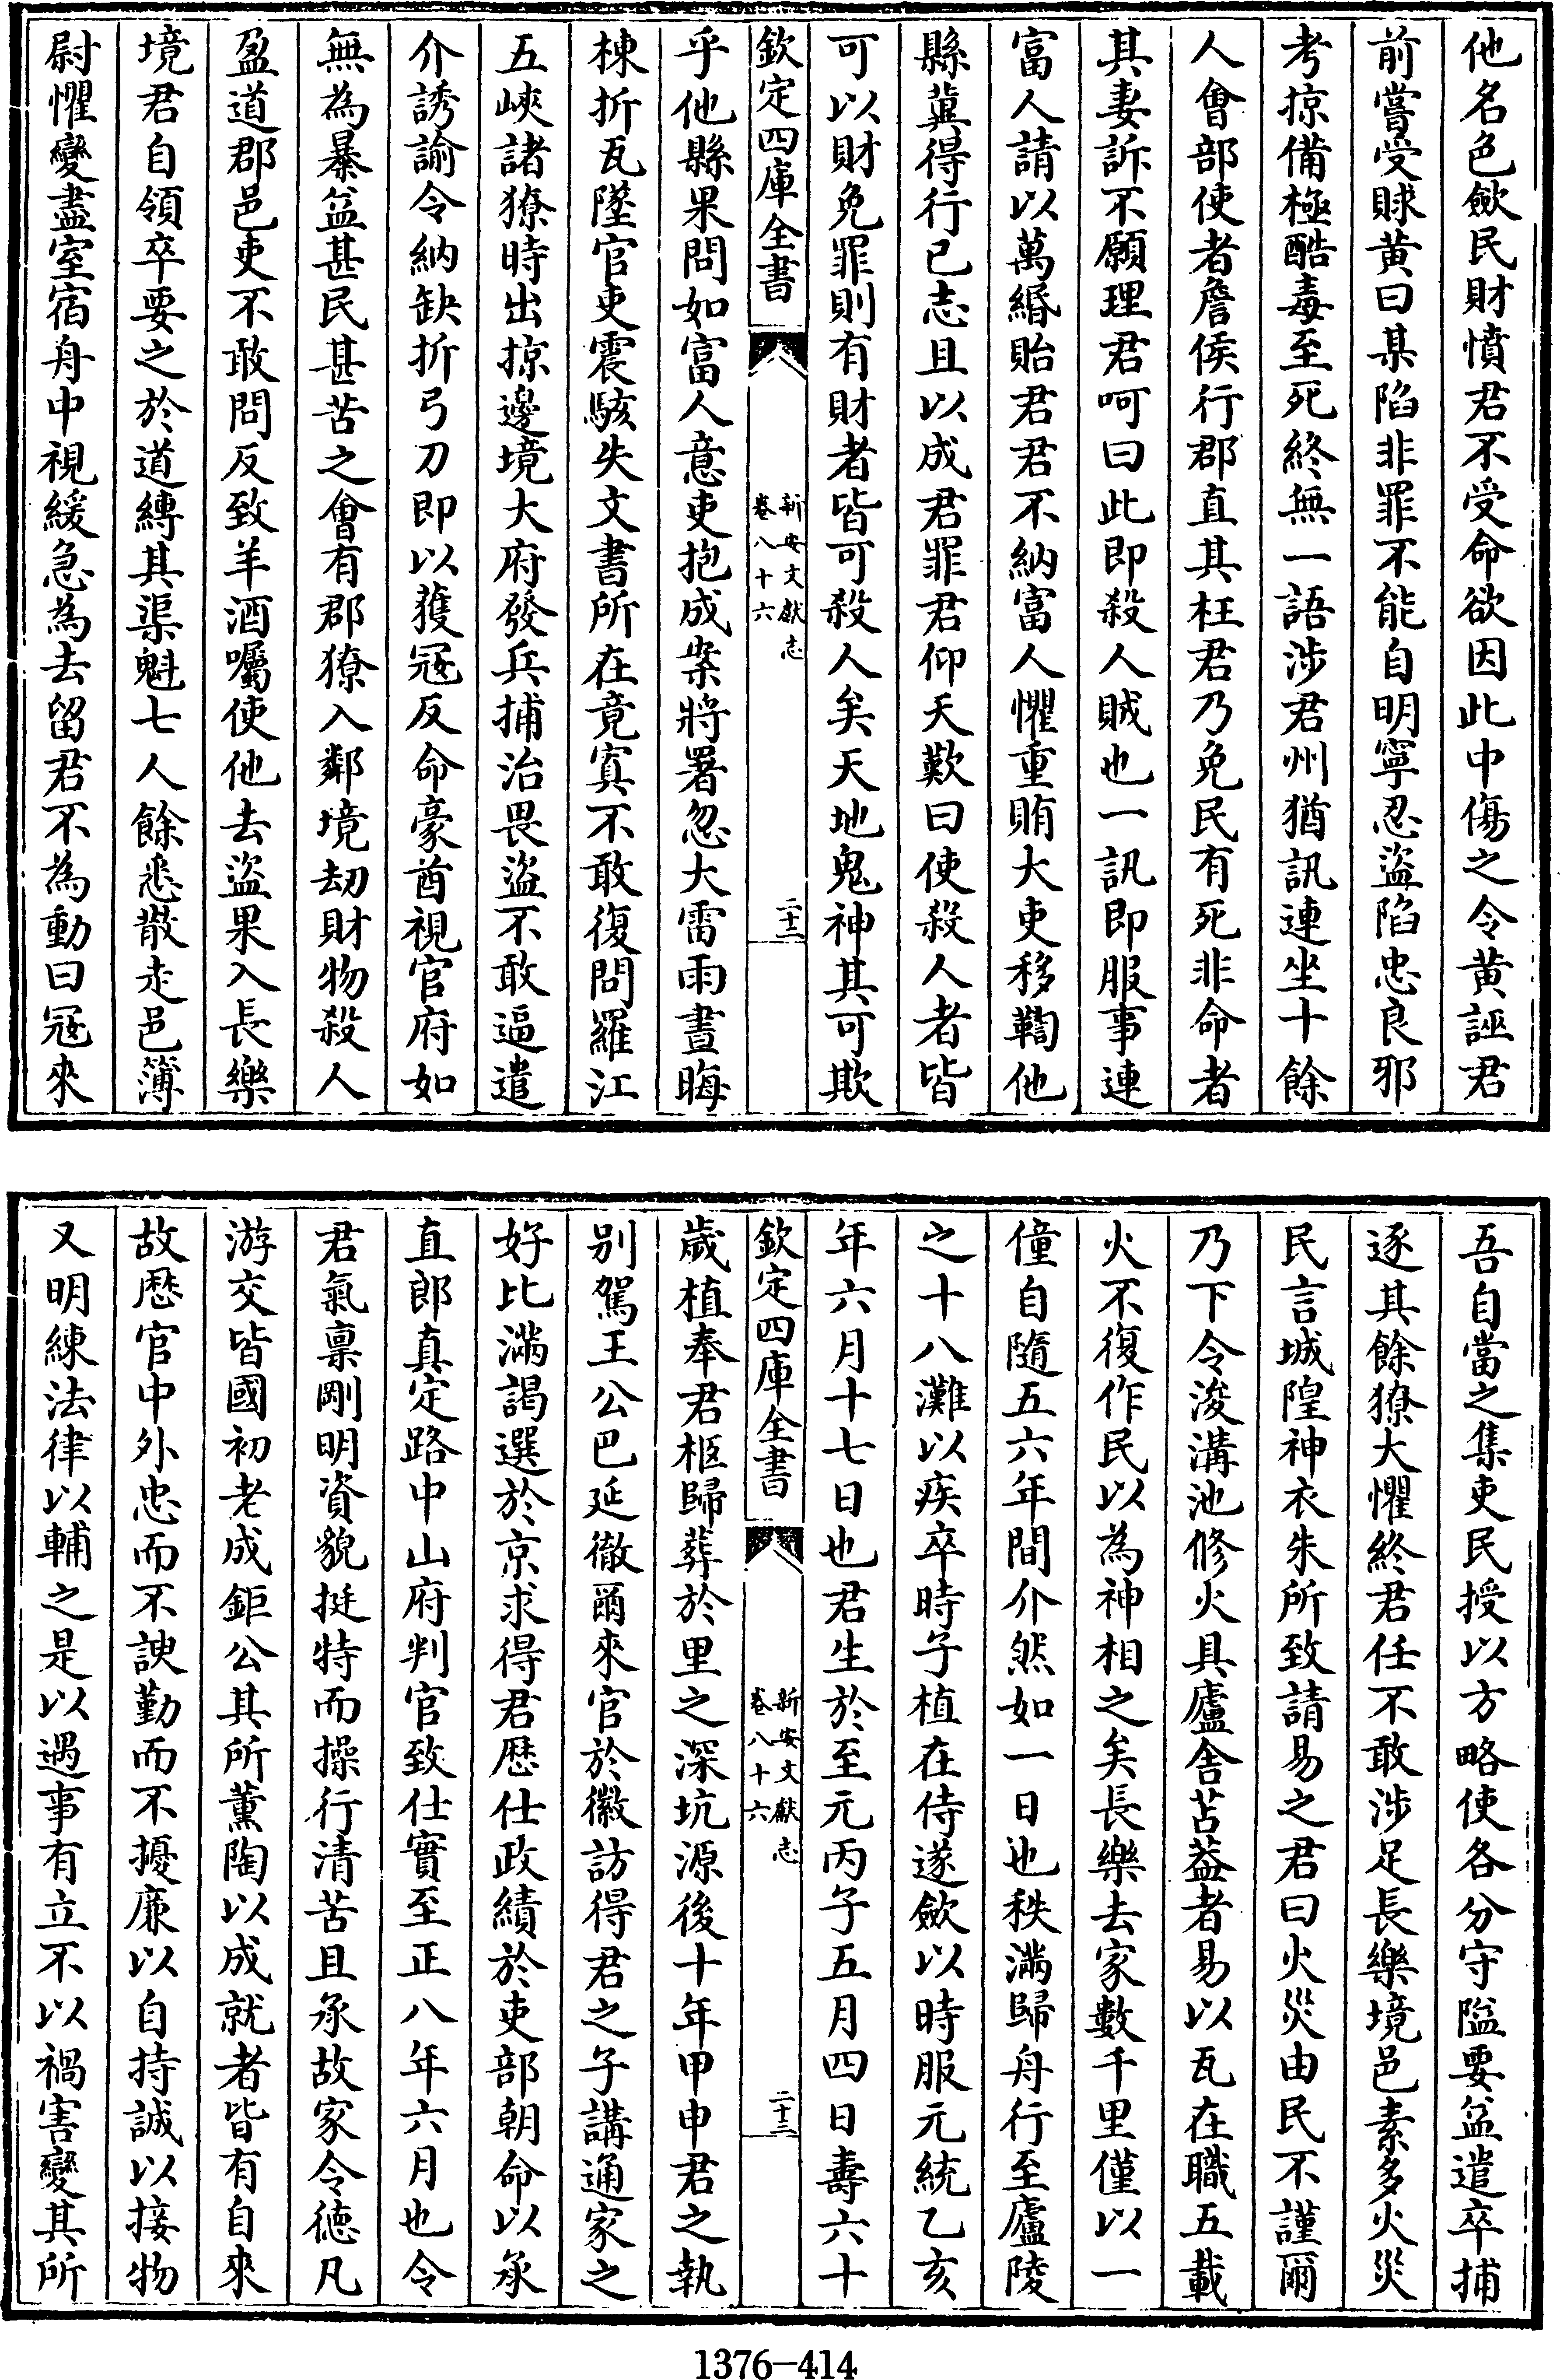 他名色斂民財憤君不受命欲因此中傷之令黄誣君
前嘗受賕黄曰某陷非罪不能自明寧忍盜陷忠良邪
考掠備極酷毒至死終無一語涉君州猶訊連坐十餘
人㑹部使者詹侯行郡直其枉君乃免民有死非命者
其妻訴不願理君呵曰此即殺人賊也一訊即服事連
富人請以萬緡貽君君不納富人懼重賄大吏移鞫他
縣冀得行已志且以成君罪君仰天歎曰使殺人者皆
可以財免罪則有財者皆可殺人矣天地鬼神其可欺
欽定四庫全書
新安文獻志
卷八十六
二十二
乎他縣果問如富人意吏抱成案將署忽大雷雨晝晦
棟折瓦墜官吏震駭失文書所在竟寘不敢復問羅江
五峽諸獠時出掠邊境大府發兵捕治畏盜不敢逼遣
介誘諭令納缺折弓刀即以獲冦反命豪酋視官府如
無為暴益甚民甚苦之㑹有郡獠入鄰境刼財物殺人
盈道郡邑吏不敢問反致羊酒囑使他去盜果入長樂
境君自領卒要之於道縛其渠魁七人餘悉散走邑簿
尉懼變盡室宿舟中視緩急為去留君不為動曰冦來
吾自當之集吏民授以方略使各分守隘要益遣卒捕
逐其餘獠大懼終君任不敢涉足長樂境邑素多火災
民言城隍神衣朱所致請易之君曰火災由民不謹爾
乃下令浚溝池修火具廬舎苫葢者易以瓦在職五載
火不復作民以為神相之矣長樂去家數千里僅以一
僮自隨五六年間介然如一日也秩滿歸舟行至廬陵
之十八灘以疾卒時子植在侍遂斂以時服元統乙亥
年六月十七日也君生於至元丙子五月四日壽六十
欽定四庫全書
新安文獻志
卷八十六
二十三
歲植奉君柩歸葬於里之深坑源後十年甲申君之執
别駕王公巴延徹爾來官於徽訪得君之子講通家之
好比滿謁選於京求得君歴仕政績於吏部朝命以承
直郎真定路中山府判官致仕實至正八年六月也令
君氣禀剛明資貌挺特而操行清苦且承故家令徳凡
游交皆國初老成鉅公其所薰陶以成就者皆有自來
故歴官中外忠而不諛勤而不擾廉以自持誠以接物
又明練法律以輔之是以遇事有立不以禍害變其所
1376-414